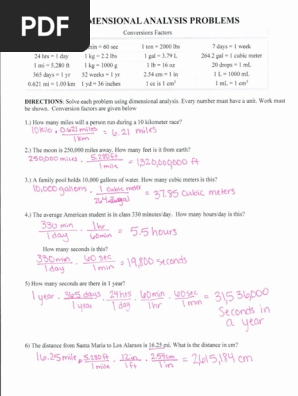 PDF
MENSIONAL ANALYSIS PROBLEMS
Conversions Factors
min = 60 sec 1 ton = 2000 lbs 7 days = 1 week
24 hrs = 1 day 1 kg = 2.2 lbs 1 gal = 3.79 L 264.2 gal = 1 cubic meter
1 mi = 5,280 ft 1 kg = 1000 g 1 lb = 16 oz 20 drops = 1 mL
365 days = 1 yr 52 weeks = 1 yr 2.54 cm = 1 in 1 L = 1000 mL
0.621 mi = 1.00 km 1 yd = 36 inches 1 cc is 1 cm³ 1 mL = 1 cm³
DIRECTIONS: Solve each problem using dimensional analysis. Every number must have a unit. Work must
be shown. Conversion factors are given below
1.) How many miles will a person run during a 10 kilometer race?
10 km . 0.621 miles / 1 km = 6.21 miles
2.) The moon is 250,000 miles away. How many feet is it from earth?
250,000 miles . 5,280 ft / 1 mile = 1,320,000,000 ft
3.) A family pool holds 10,000 gallons of water. How many cubic meters is this?
10,000 gallons . 1 cubic meter / 264.2 gallons = 37.85 cubic meters
4.) The average American student is in class 330 minutes/day. How many hours/day is this?
330 min / 1 day . 1 hr / 60 min = 5.5 hours
How many seconds is this?
330 min / 1 day . 60 sec / 1 min = 19,800 seconds
5.) How many seconds are there in 1 year?
1 year . 365 days / 1 year . 24 hrs / 1 day . 60 min / 1 hr . 60 sec / 1 min = 31,536,000
seconds in
a year
6) The distance from Santa Maria to Los Alamos is 16.25 mi. What is the distance in cm?
16.25 mile . 5,280 ft / 1 mile . 12 in / 1 ft . 2.54 cm / 1 in = 2,615,184 cm